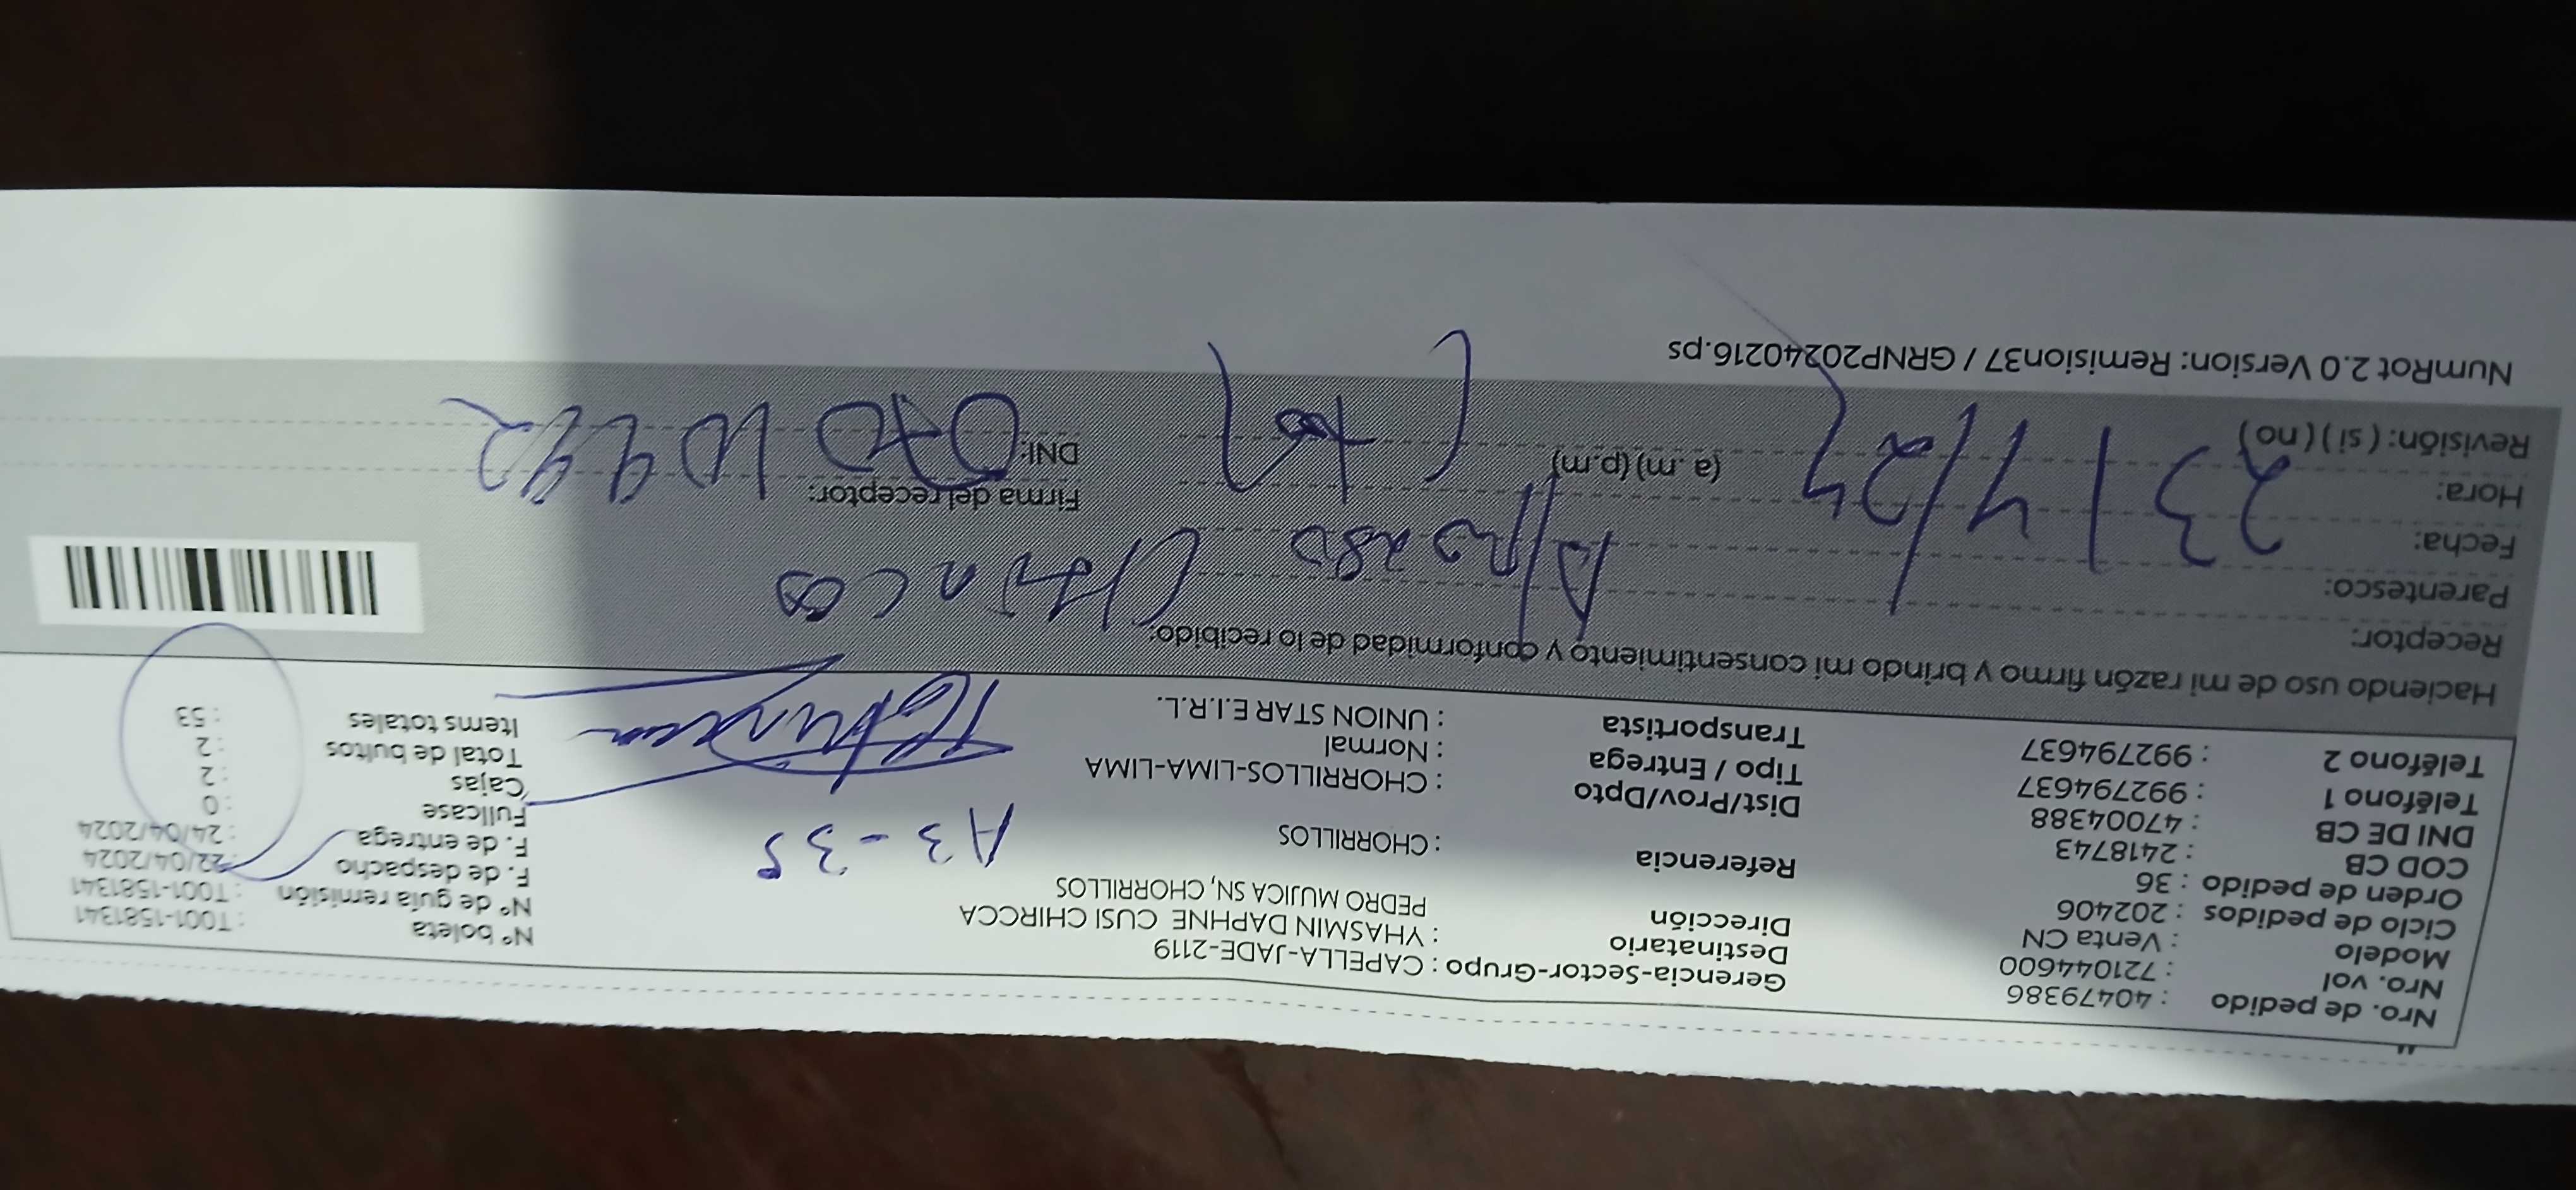 Nro. de pedido : 40479386
Nro. vol : 721044600
Modelo : Venta CN
Ciclo de pedidos : 202406
Orden de pedido : 36
COD CB : 2418743
DNI DE CB : 47004388
Teléfono 1 : 992794637
Teléfono 2 : 992794637
Gerencia-Sector-Grupo : CAPELLA-JADE-2119
Destinatario : YHASMIN DAPHNE CUSI CHIRCCA
Dirección PEDRO MUJICA SN, CHORRILLOS
Referencia : CHORRILLOS
A3-35
Dist/Prov/Dpto : CHORRILLOS-LIMA-LIMA
Tipo / Entrega : Normal
Transportista : UNION STAR E.I.R.L.
N° boleta : T001-1581341
N° de guía remisión : T001-1581341
F. de despacho : 22/04/2024
F. de entrega : 24/04/2024
Fullcase : 0
Cajas : 2
Total de bultos : 2
Items totales : 53
Haciendo uso de mi razón firmo y brindo mi consentimiento y conformidad de lo recibido:
Receptor:
Parentesco:
Fecha: 23/4/24
Hora: (a.m) (p.m)
Revisión: ( si ) ( no )
Firma del receptor:
DNI:
NumRot 2.0 Version: Remision37 / GRNP20240216.ps